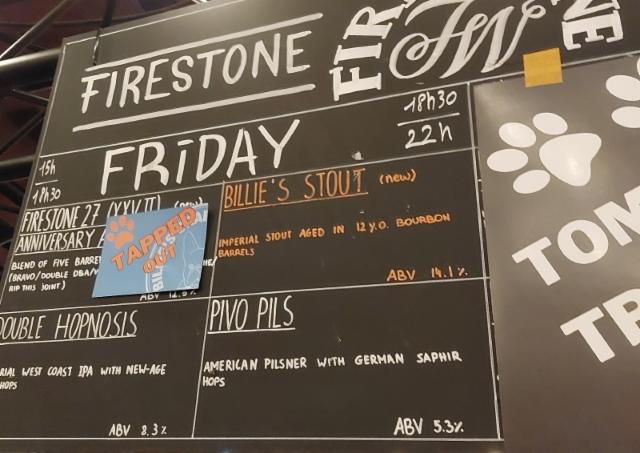 FIRESTONE
FIR
FW
NE
FRIDAY
15h
18h30
18h30
22h
FIRESTONE 27 (XXVII) (new)
ANNIVERSARY
BLEND OF FIVE
(BRAVO/DOUBLE DBA/
RIP THIS JOINT)
ABV 12.5%
TAPPED
OUT
BILLIE'S STOUT (new)
IMPERIAL STOUT AGED IN 12 Y.O. BOURBON
BARRELS
ABV 14.1%
DOUBLE HOPNOSIS
RIAL WEST COAST IPA WITH NEW-AGE
HOPS
ABV 8.3%
PIVO PILS
AMERICAN PILSNER WITH GERMAN SAPHIR
HOPS
ABV 5.3%
TOM
TR